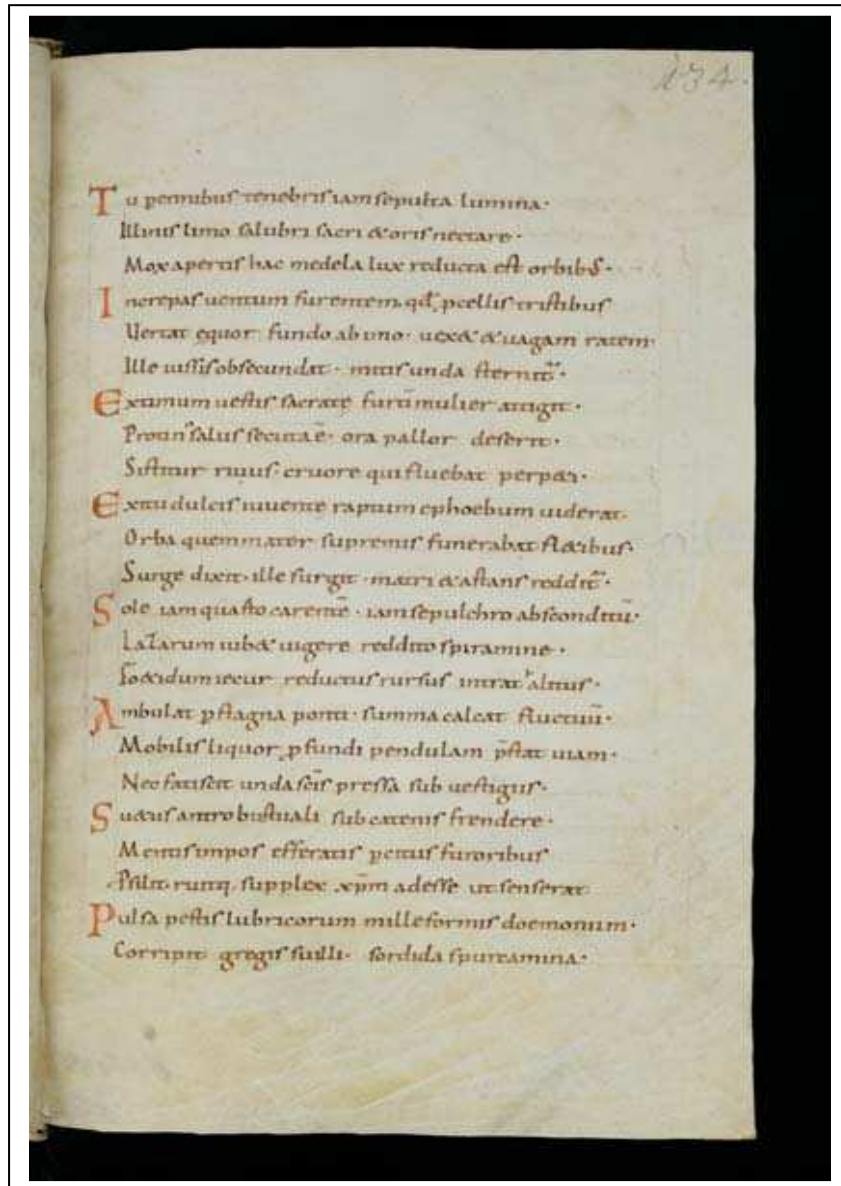 134.
Tu pennibus tenebris iam sepulta lumina·
Illinis limo salubri sacri & oris nectare·
Mox apertis hac medela lux reducta est orbib;·
Increpas uentum furentem, qd pcellis tristibus
Uertat equor fundo ab imo· uex& & uagam ratem·
Ille iussis obsecundat· mitis unda sternit᷒·
Extimum uestis sacratę furtī mulier attigit·
Protin' salus secuta ē· ora pallor deserit·
Sistitur riuus· cruore qui fluebat perpeti·
Exitu dulcis iuuentę raptum ephoebum uiderat·
Orba quem mater supremis funerabat fl&ibus·
Surge dixit· ille surgit· matri & astans reddit᷒·
Sole iam quarto carentē· iam sepulchro absconditū·
Lazarum iub& uigere reddito spiramine·
Fo&idum iecur reductus rursus intrat halitus·
Ambulat p stagna ponti· summa calcat fluctuū·
Mobilis liquor pfundi pendulam pstat uiam·
Nec fatiscit unda scīs pressa sub uestigiis·
Su&us antro bustuali sub catenis frendere·
Mentis impos efferatis percitus furoribus
Psilit· ruitq; supplex xpm adesse ut senserat
Pulsa pestis lubricorum milleformis doemonum·
Corripit gregis suilli· sordida spurcamina·